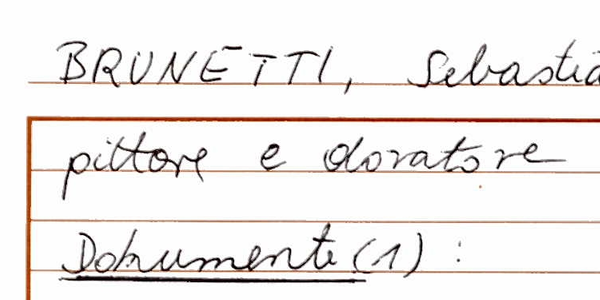 BRUNETTI, Sebastia
pittore e doratore
Dokumente (1) :